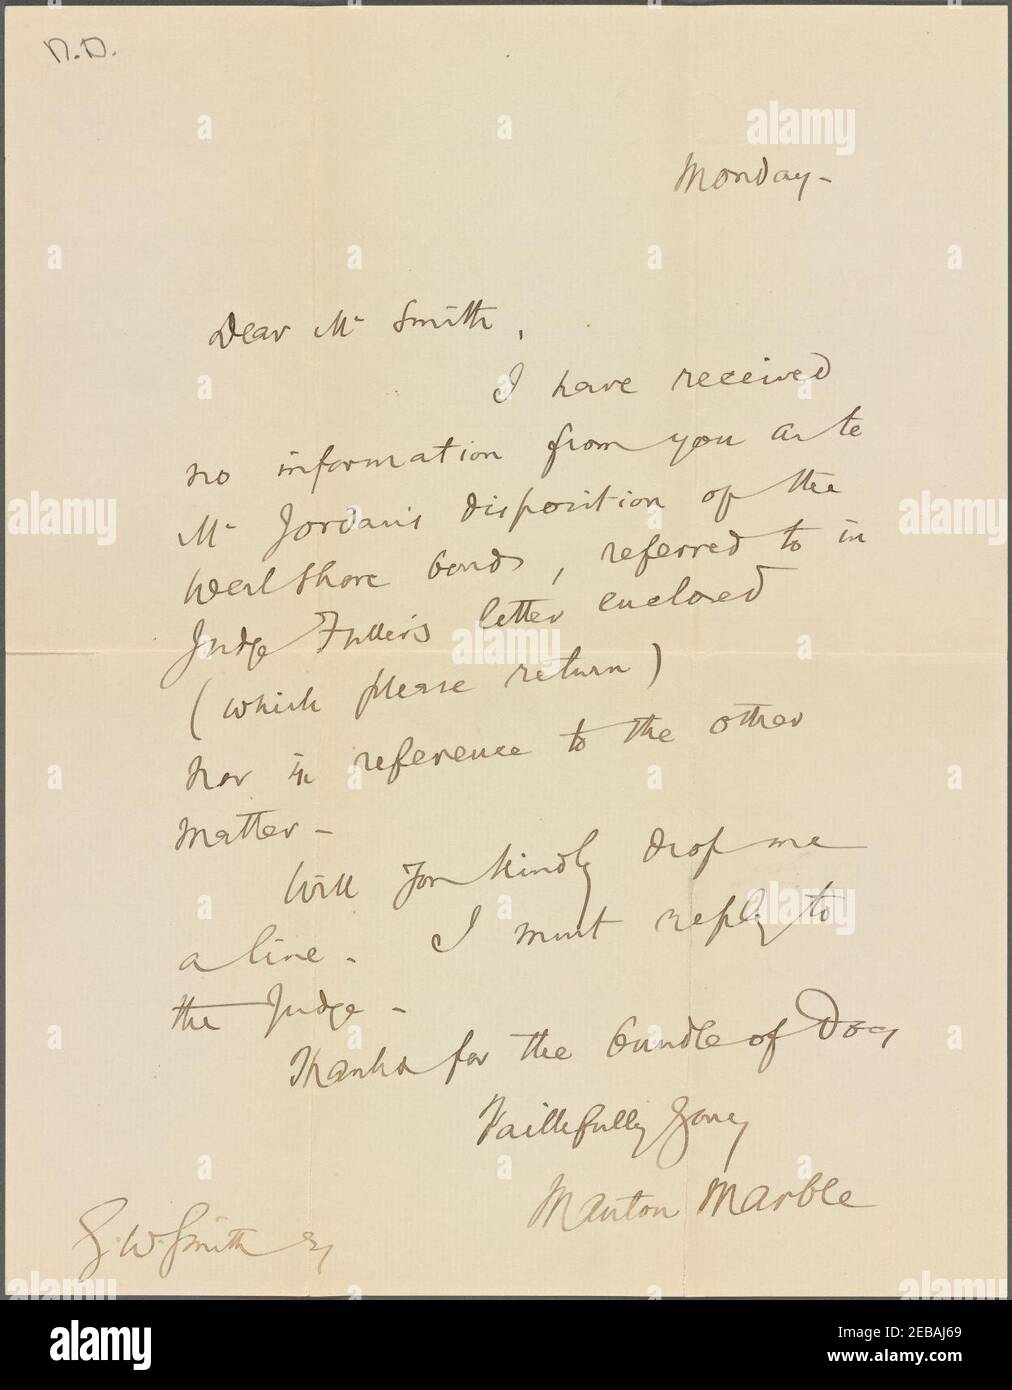 N.D.
Monday -
Dear Mr Smith,
I have received
no information from you as to
Mr Jordan's disposition of the
West Shore bonds, referred to in
Judge Fuller's letter enclosed
(which please return)
nor in reference to the other
matter -
Will you kindly drop me
a line. I must reply to
the Judge -
Thanks for the bundle of Docs
Faithfully yours
Manton Marble
W. Smith Esq
alamy
Image ID: 2EBAJ69
www.alamy.com